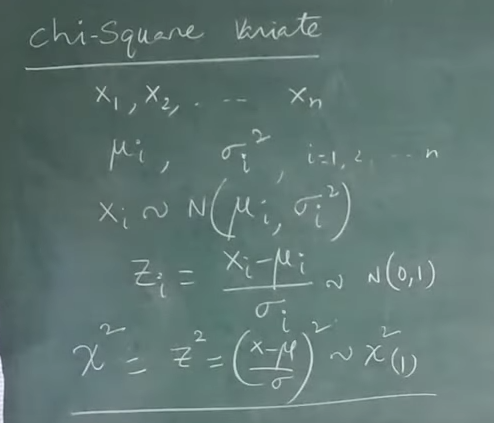 Chi-Square Variate
x₁, x₂, . --- xₙ
μᵢ, σᵢ², i=1, 2, --- n
xᵢ ~ N(μᵢ, σᵢ²)
Zᵢ = (xᵢ-μᵢ)/σᵢ ~ N(0,1)
χ² = Z² = ((x-μ)/σ)² ~ χ²(1)